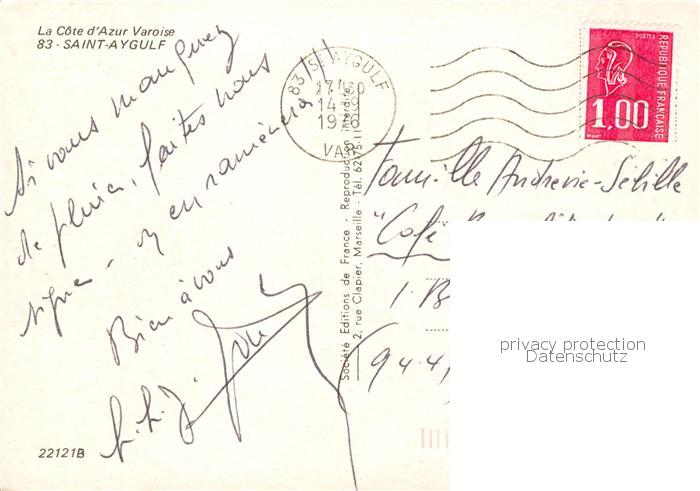 La Côte d'Azur Varoise
83 - SAINT-AYGULF
Si vous manquez
de pluie, faites nous
signe - on en ramènera!!!
Bien à vous
22121B
Société Editions de France - Reproduction interdite
2, rue Clapier, Marseille - Tél. 62-75-11
83 ST AYGULF
17H30
14-9
1976
VAR
POSTES
REPUBLIQUE FRANÇAISE
1,00
Famille Andrevie-Sébille
"Café
1. B
94.4
privacy protection
Datenschutz